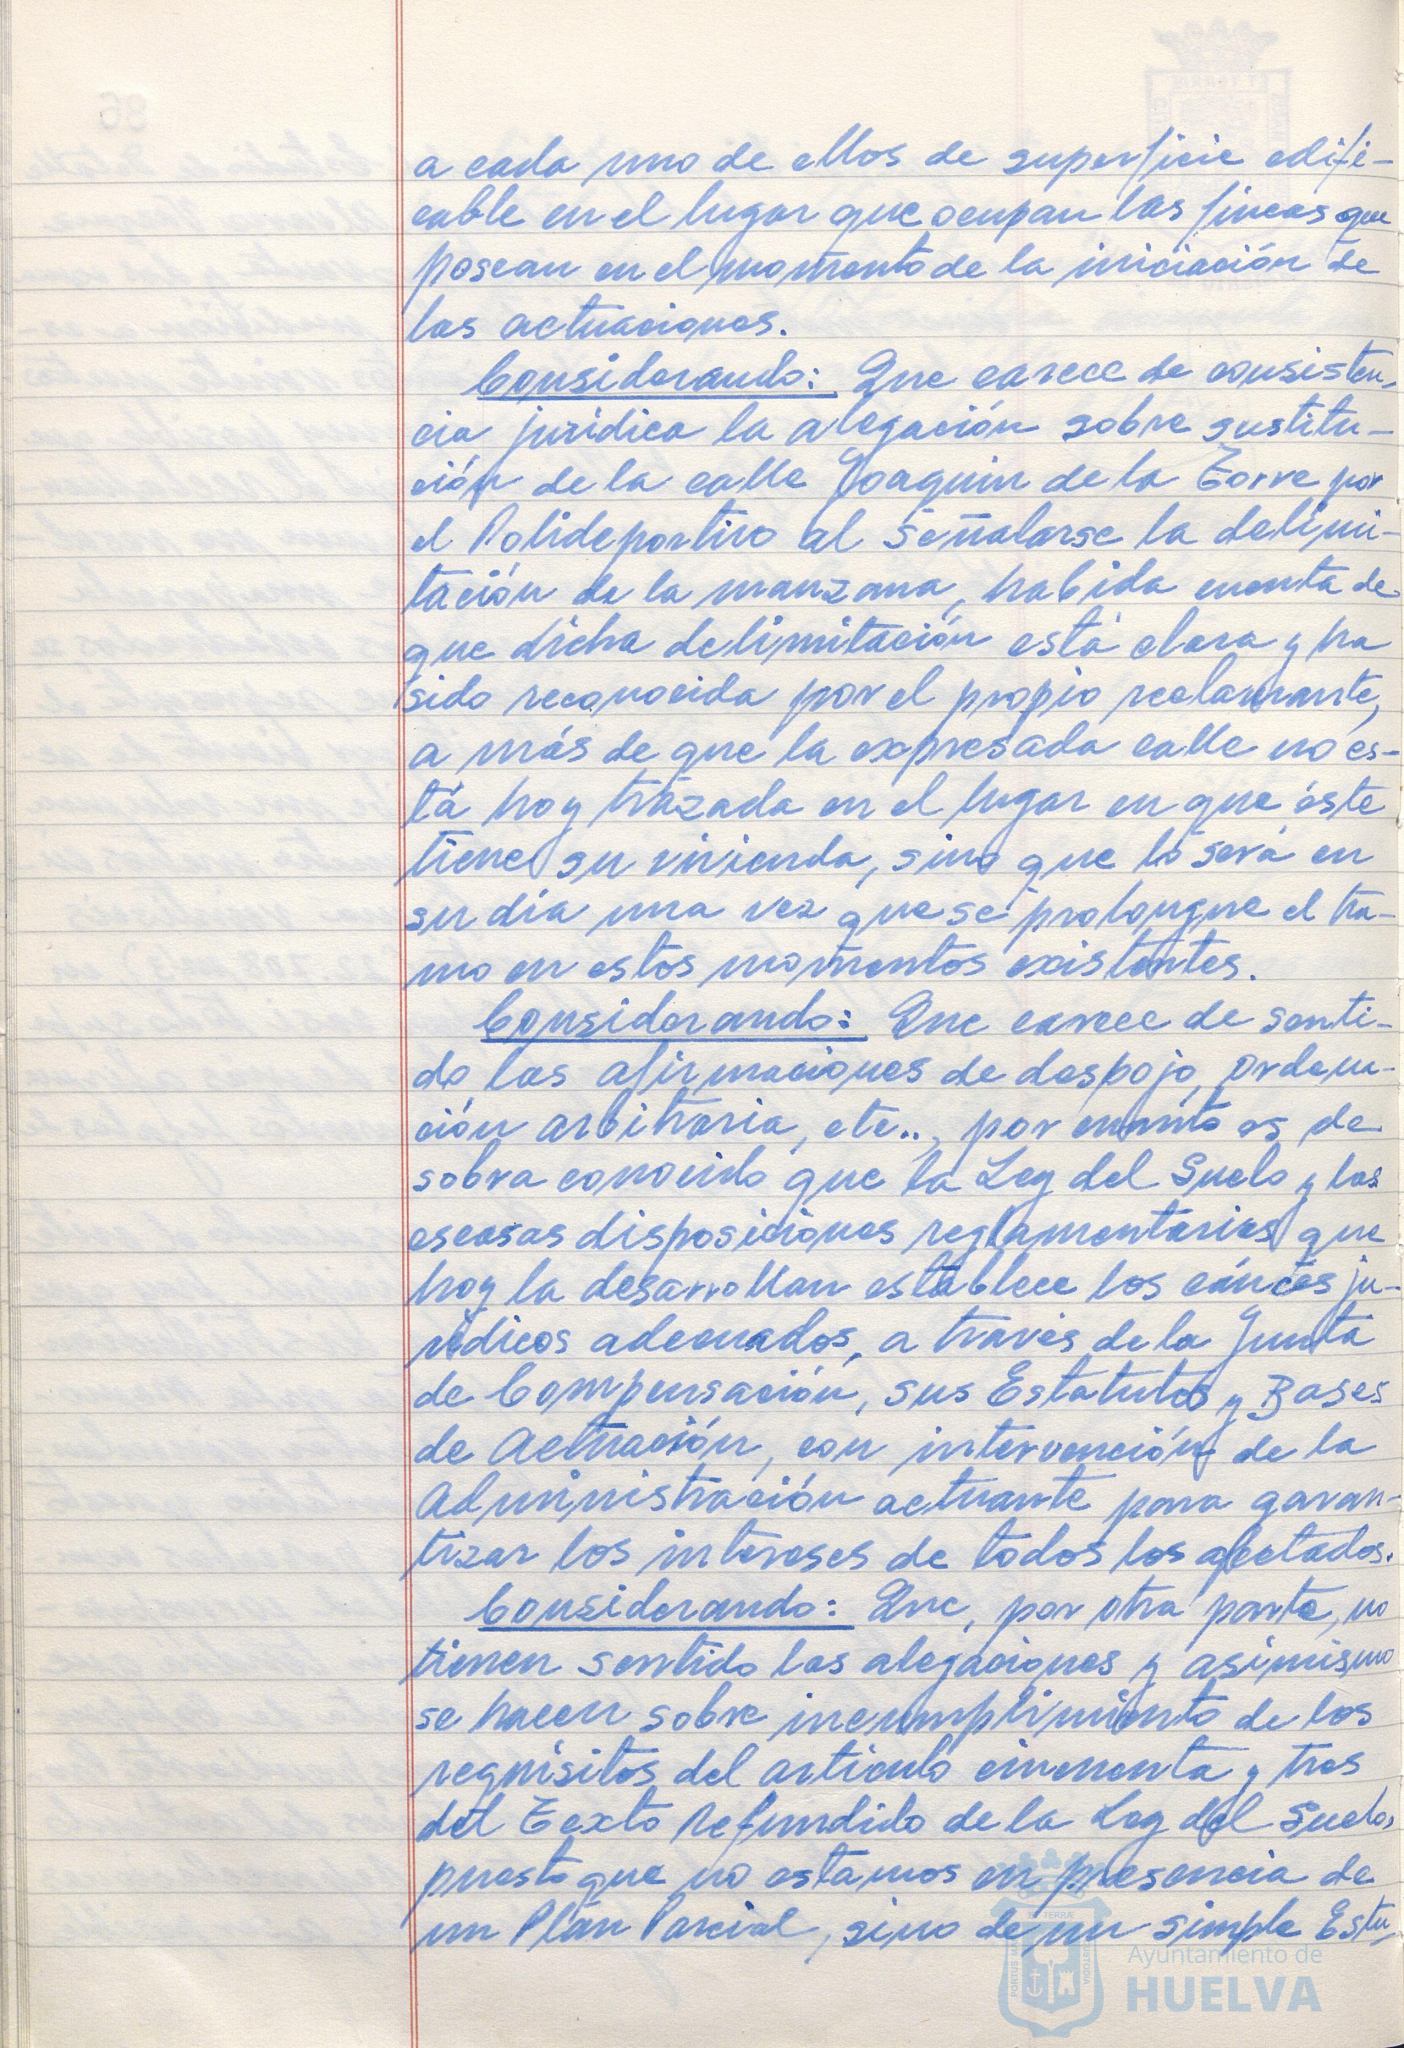 a cada uno de ellos de superficie edifi-
cable en el lugar que ocupan las fincas que
posean en el momento de la iniciación de
las actuaciones.
Considerando: Que carece de consisten-
cia jurídica la alegación sobre sustitu-
ción de la calle Joaquin de la Torre por
el Polideportivo al señalarse la delimi-
tación de la manzana, habida cuenta de
que dicha delimitación está clara y ha
sido reconocida por el propio reclamante,
a más de que la expresada calle no es-
tá hoy trazada en el lugar en que éste
tiene su vivienda, sino que lo será en
su día una vez que se prolongue el tra-
mo en estos momentos existentes.
Considerando: Que carece de senti-
do las afirmaciones de despojo, ordena-
ción arbitraria, etc.., por cuanto es de
sobra conocido que la Ley del Suelo y las
escasas disposiciones reglamentarias que
hoy la desarrollan establece los cáuces ju-
rídicos adecuados, a través de la Junta
de Compensación, sus Estatutos y Bases
de Actuación, con intervención de la
Administración actuante para garan-
tizar los intereses de todos los afectados.
Considerando: Que, por otra parte, no
tienen sentido las alegaciones y asimismo
se hacen sobre incumplimiento de los
requisitos del artículo cincuenta y tres
del Texto Refundido de la Ley del Suelo,
puesto que no estamos en presencia de
un Plan Parcial, sino de un simple Estu-
Ayuntamiento de
HUELVA